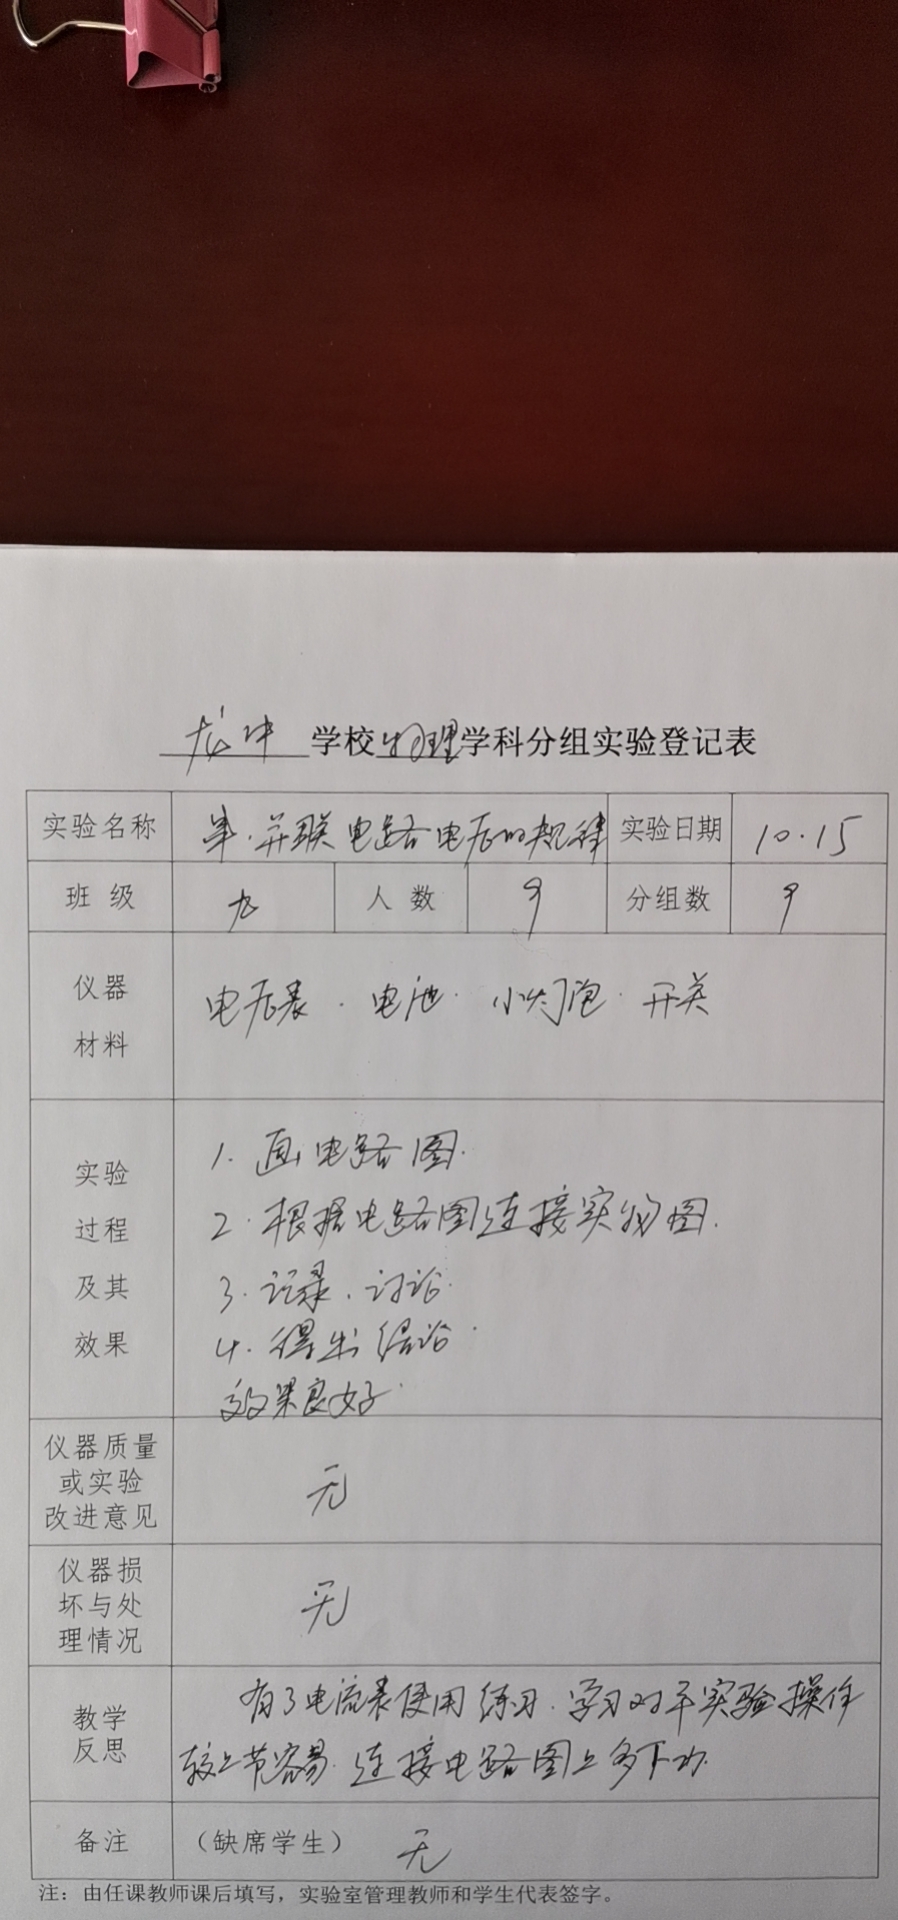 龙中 学校 物理 学科分组实验登记表
实验名称 串.并联电路电压的规律 实验日期 10.15
班 级 九 人 数 9 分组数 9
仪器
材料
电压表. 电池. 小灯泡. 开关
实验
过程
及其
效果
1. 画电路图.
2. 根据电路图连接实物图.
3. 记录. 讨论.
4. 得出结论.
效果良好.
仪器质量
或实验
改进意见
无
仪器损
坏与处
理情况
无
教学
反思
有了电流表使用练习. 学习对于实验操作
较上节容易. 连接电路图上多下功.
备注 （缺席学生） 无
注：由任课教师课后填写，实验室管理教师和学生代表签字。